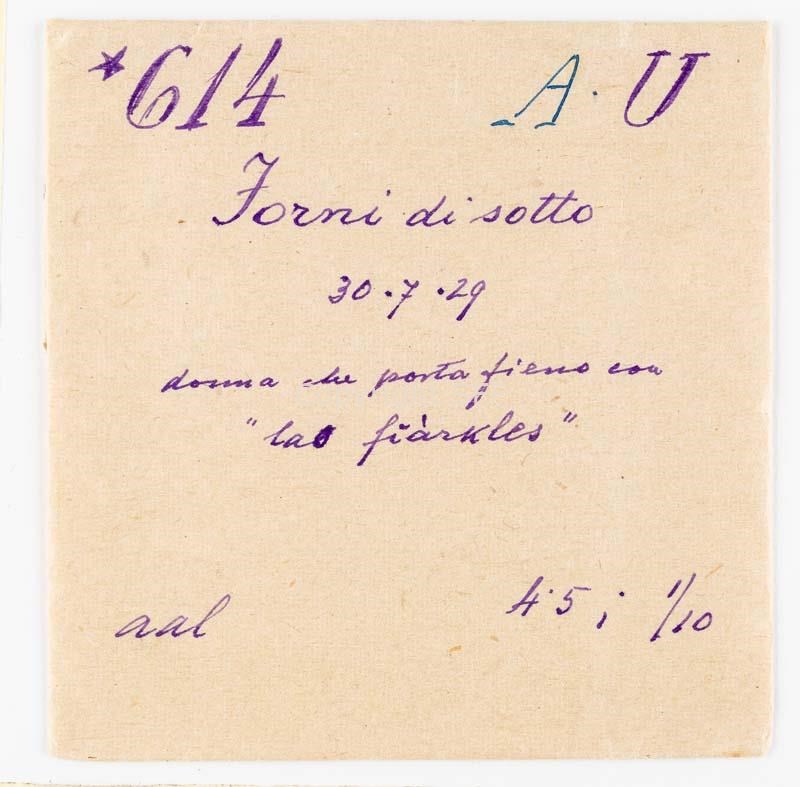 *614 A. U
Forni di sotto
30.7.29
donna che porta fieno con
"las fiàrkles"
aal 4·5; 1/10